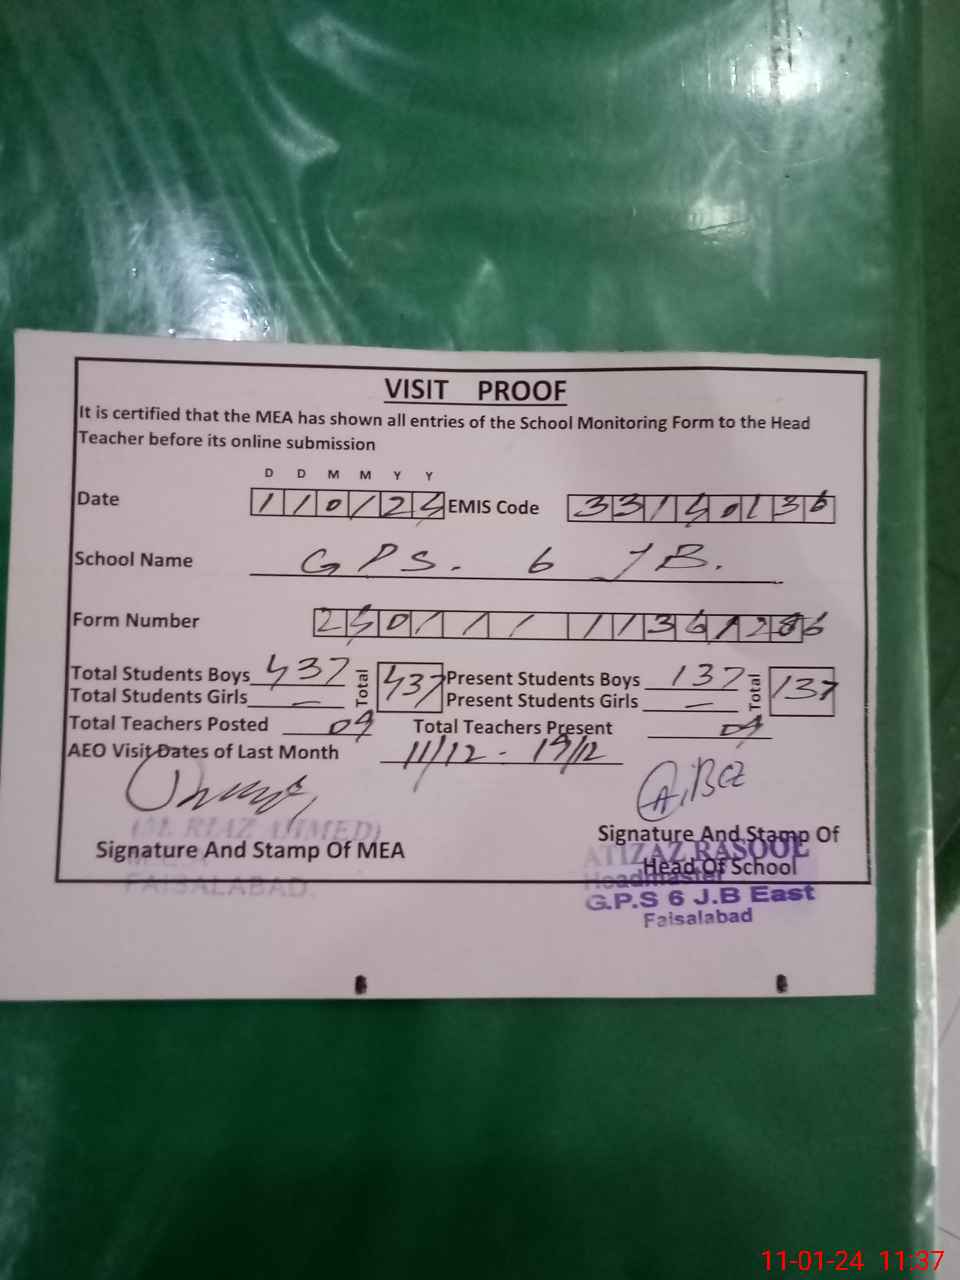 VISIT PROOF
It is certified that the MEA has shown all entries of the School Monitoring Form to the Head
Teacher before its online submission
D D M M Y Y
Date 110124 EMIS Code 33140136
School Name GPS. 6 JB.
Form Number
Total Students Boys 437 Total 437 Present Students Boys 137 Total 137
Total Students Girls — Present Students Girls —
Total Teachers Posted 09 Total Teachers Present 09
AEO Visit Dates of Last Month 11/12 - 19/12
(M. RIAZ AHMED)
Signature And Stamp Of MEA
FAISALABAD.
Signature And Stamp Of
ATIZAZ RASOOL
Head Of School
Headmaster
G.P.S 6 J.B East
Faisalabad
11-01-24 11:37